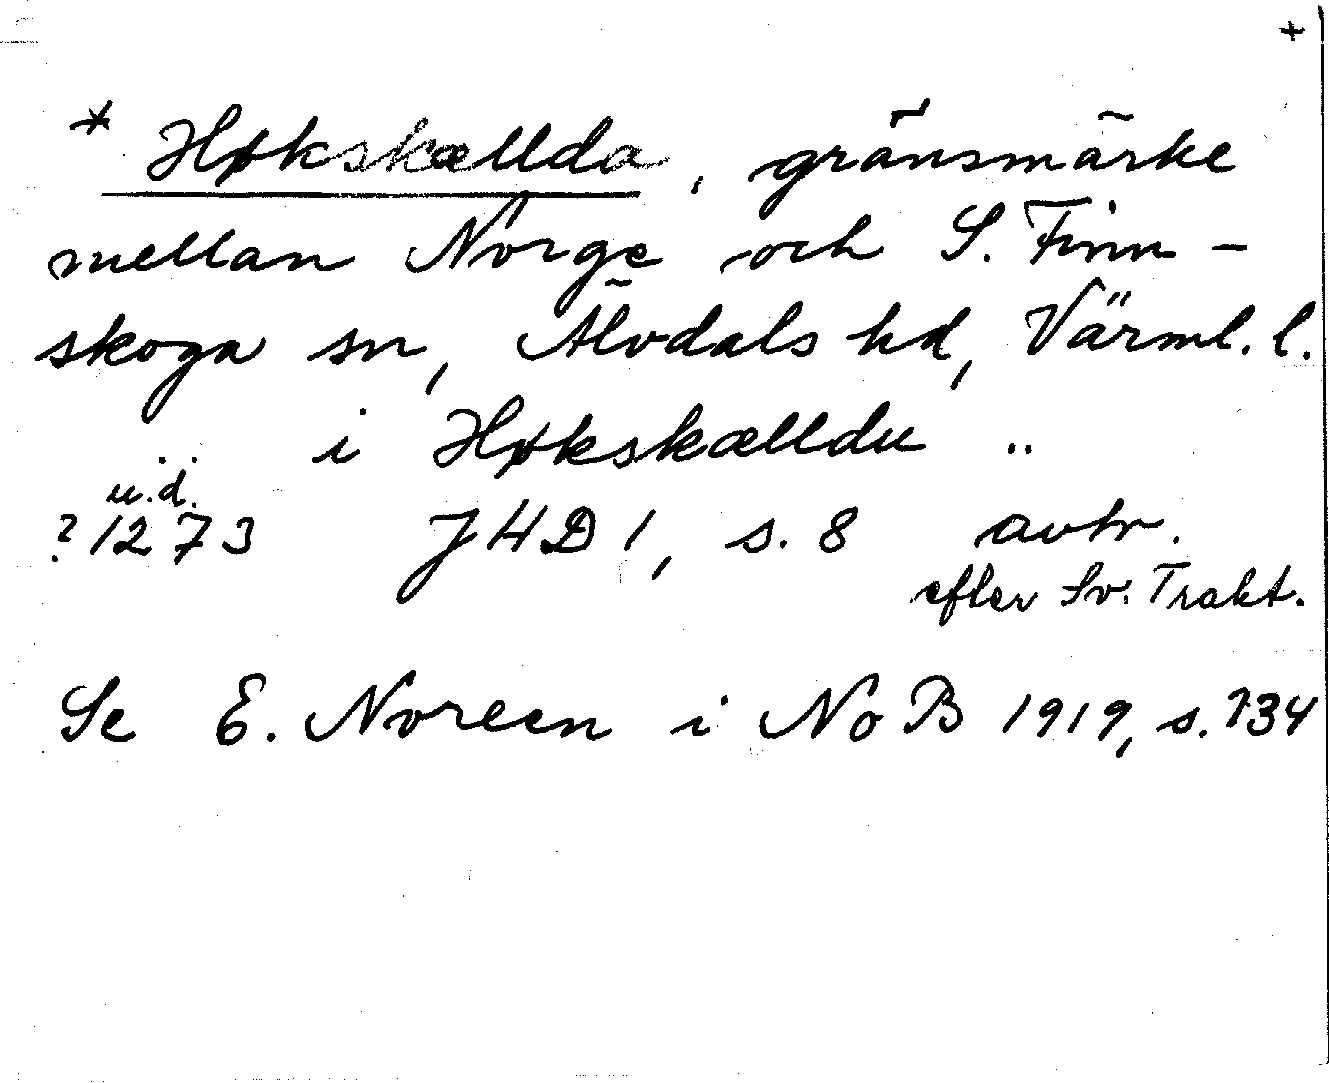 +
* Høkskællda, gränsmärke
mellan Norge och S. Finn-
skoga sn, Älvdals hd, Värml. l.
.. i Høkskælldu ..
u.d.
? 1273 JHD 1, s. 8 avtr.
efter Sv. Trakt.
Se E. Noreen i NoB 1919, s. 134